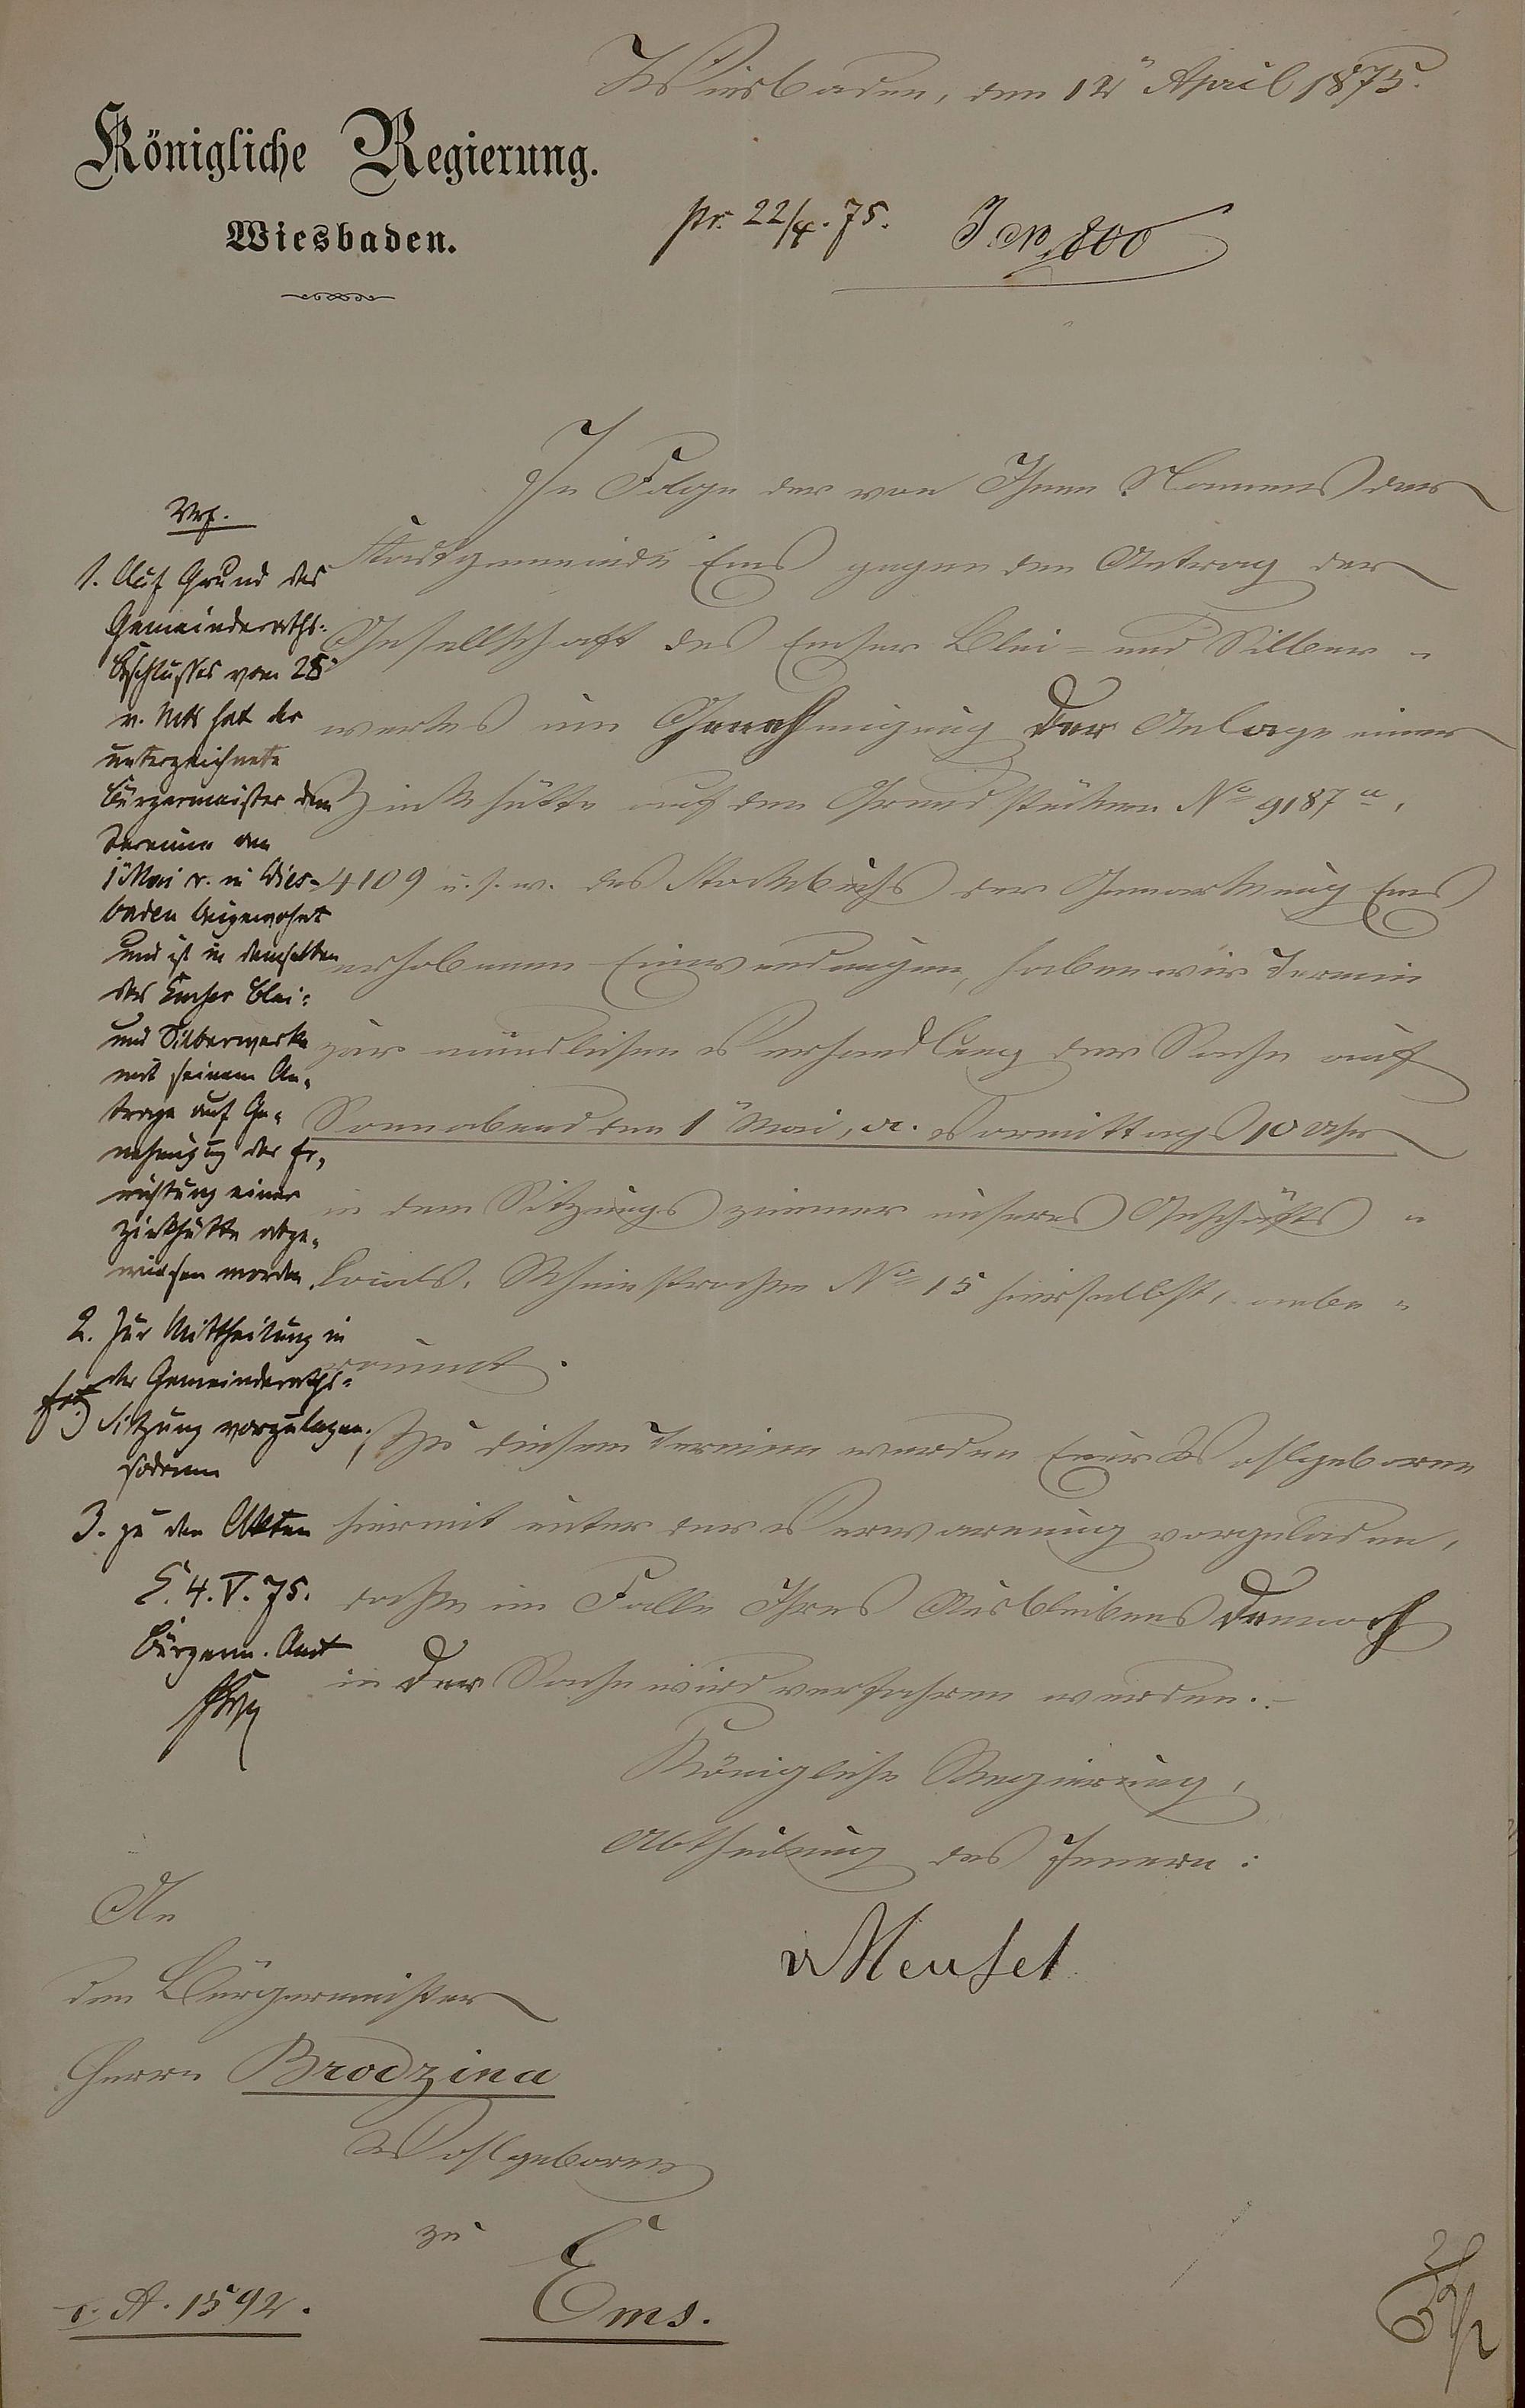 Wiesbaden, den 12" April 1875.
Königliche Regierung.
Wiesbaden.
pr. 22/4. 75. J. No 800
In Folge der von Ihnen Namens der
Stadtgemeinde Ems gegen den Antrag der
Gesellschaft des Emser Blei- und Silber-
werkes um Genehmigung der Anlage einer
Zinkhütte auf den Grundstücken No 9187 a,
4109 u. s. w. des Stockbuchs der Gemarkung Ems
erhobenen Einwendungen, haben wir Termin
zur mündlichen Verhandlung der Sache auf
Sonnabend den 1" Mai, cr. Vormittags 10 Uhr
in dem Sitzungszimmer unseres Geschäfts-
locals, Rheinstraße No 15 hierselbst, anbe-
raumt.
Zu diesem Termine werden Euer Wohlgeboren
hiermit unter der Verwarnung vorgeladen,
daß im Falle Ihres Ausbleibens dennoch
in der Sache wird verfahren werden.-
Königliche Regierung,
Abtheilung des Innern:
v Meusel
An
den Bürgermeister
Herrn Brodzina
Wohlgeboren
zu
Ems.
A. 1592.
Vrf.
1. Auf Grund des
Gemeinderaths-
Beschlusses vom 28"
v. Mts hat der
unterzeichnete
Bürgermeister dem
Termine am
1" Mai cr. in Wies-
baden beigewohnt
und ist in demselben
das Emser Blei-
und Silberwerk
mit seinem An-
trage auf Ge-
nehmigung der Er-
richtung einer
Zinkhütte abge-
wiesen worden.
2. Zur Mittheilung in
der Gemeinderaths-
Sitzung vorzulegen,
sodann
3. zu den Akten
E. 4. V. 75.
Bürgerm. Amt